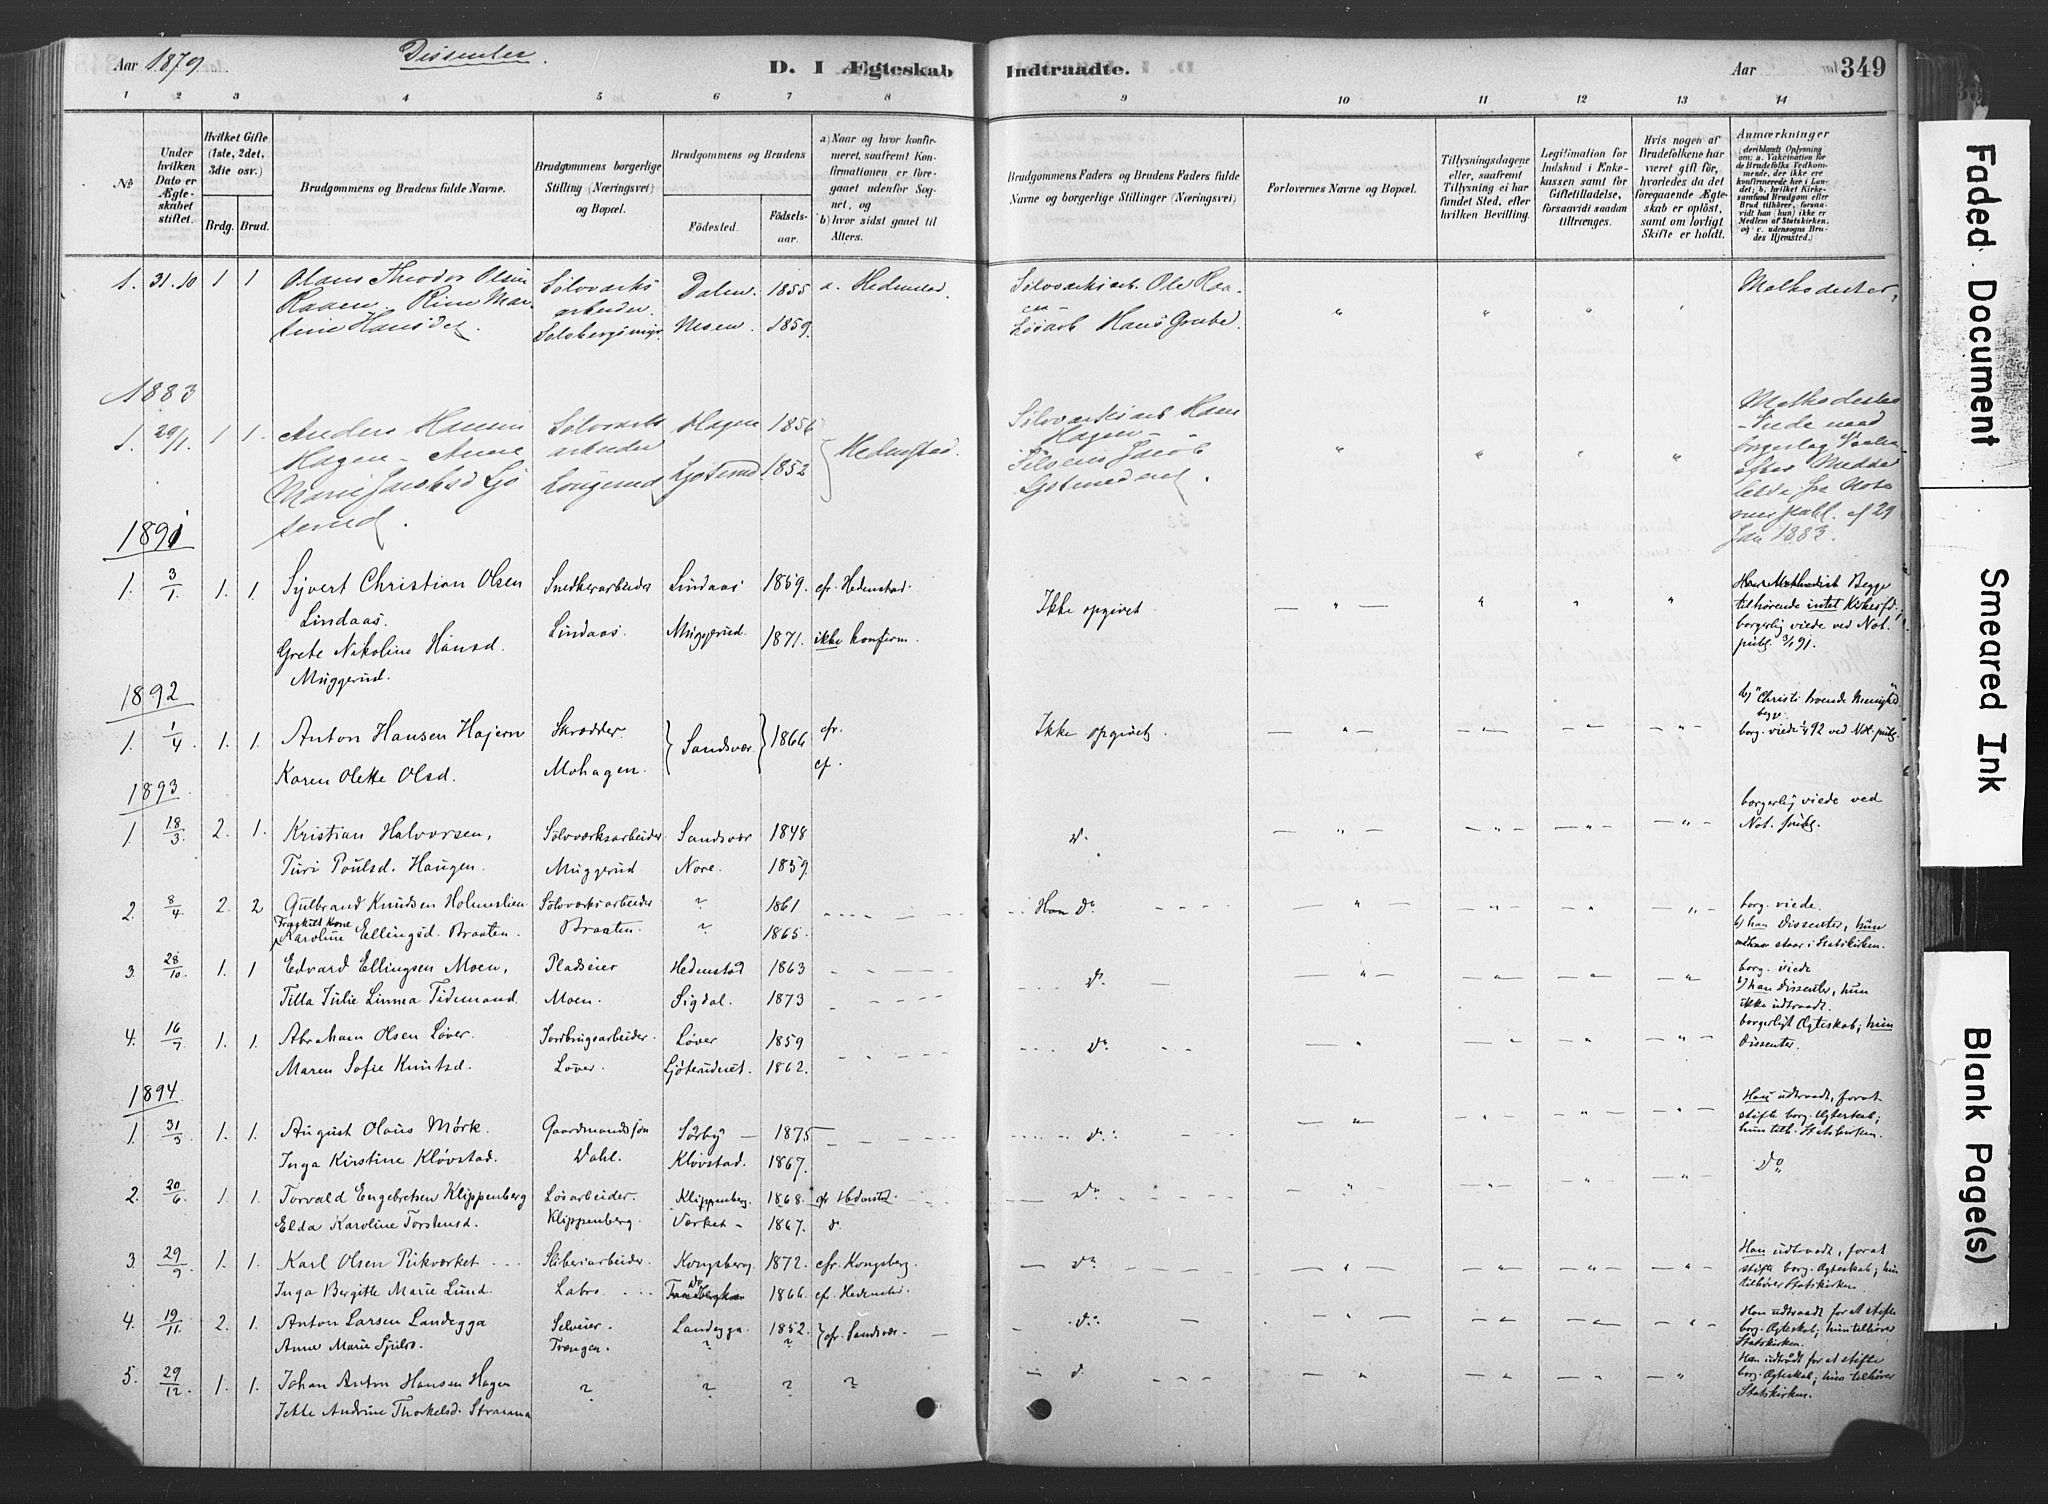 Aar 1879
Dissenter.
D. I Ægteskab
Indtraadte.
Aar
349
1 2 3 4 5 6 7 8 9 10 11 12 13 14
№
Under hvilken Dato er Ægteskabet stiftet.
Hvilket Gifte (1ste, 2det, 3die osv.)
Brdg. Brud.
Brudgommens og Brudens fulde Navne.
Brudgommens borgerlige Stilling (Næringsvei) og Bopæl.
Brudgommens og Brudens
Fødested.
Fødselsaar.
a) Naar og hvor konfirmeret, saafremt Konfirmationen er foregaaet udenfor Sognet, og
b) hvor sidst gaaet til Alters.
Brudgommens Faders og Brudens Faders fulde Navne og borgerlige Stillinger (Næringsvei)
Forlovernes Navne og Bopæl.
Tillysningsdagene eller, saafremt Tillysning ei har fundet Sted, efter hvilken Bevilling.
Legitimation for Indskud i Enkekassen samt for Giftetilladelse, forsaavidt saadan tiltrænges.
Hvis nogen af Brudefolkene har været gift før, hvorledes da det foregaaende Ægteskab er opløst, samt om lovligt Skifte er holdt.
Anmærkninger (deriblandt Oplysning om: a. Vakcination for de Brudefolks Vedkommende, der ikke ere konfirmerede her i Landet; b, hvilket Kirkesamfund Brudgom eller Brud tilhører, forsaavidt han (hun) ikke er Medlem af Statskirken, og c. udensogns Brudes Hjemsted.)
1. 31.10 1 1 Olaus Theodor Olsen Sølvværks Dalen. 1855 a. Hedenstad. Sølvværksarb. Ole Raaen Methodister,
Raaen. arbeider.
tine Hansdt. Nesen. 1859. Løsarb Hans Grube.
1883
1. 29/1. 1 1. Anders Hansen Sølvværks Hagen 1856 Hedenstad. Sølvværksarb Hans
Hagen - Anne arbeider Hagen -
Marie Jacobsd 1852 Jacob
Jan 1883.
1891
1. 3/1 1. 1. Syvert Christian Olsen Snedkerarbeider Lindaas 1859. cfr. Hedenstad. Ikke opgivet. Begge
Lindaas. Lindaas. tilhørende intet Kirkesfd,
Grete Nikoline Hansd. Muggerud. 1871. ikke konfirm. borgerlig viede ved Not.
Muggerud. publ. 3/1 91.
1892
1. 1/4 1. 1. Anton Hansen Hajern Skrædder Sandsvær. 1866 cfr. Ikke opgivet. b) "Christi troende Menighed"
begge
Karen Olette Olsd. Mohagen. cf. borg. viede 1/4 92 ved Not. publ.
1893
1. 18/3 2. 1. Kristian Halvorsen, Sølvværksarbeider Sandsvær 1848 Do. borgerlig viede ved
Not. publ.
Turi Poulsd. Haugen. Muggerud Nore. 1859.
2. 8/4 2. 2 Gulbrand Knudsen Holmeslien Sølvværksarbeider ? 1861 Han Do borg. viede.
Fraskilt Kone
Karoline Ellingsd. Braaten. Braaten. ? 1865. b) han Dissenter, hun
staar i Statskirken.
3. 28/10 1. 1 Edvard Ellingsen Moen, Pladseier Hedenstad 1863 Do borg. viede
b) han Dissenter, hun
Tilla Julie Linnea Tidemand. Moen. Sigdal. 1873 ikke udtraadt.
4. 16/7 1. 1. Abraham Olsen Løver. Jordbrugsarbeider. Løver 1859 Do borgerligt Ægteskab; hun
Maren Sofie Knutsd. Løver. Ljøterudeiet. 1862. Dissenter.
1894
1. 31/3 1. 1. August Olaus Mørk. Gaardmandssøn Sørby 1875 Do. Han udtraadt, forat
stifte borg. Ægteskab;
hun tilh. Statskirken.
Inga Kirstine Kløvstad. Dahl. Kløvstad. 1867.
2. 20/6 1. 1. Torvald Engebretsen Klippenberg Løsarbeider. Klippenberg. 1868. cfr Hedenstd. Do. Do
Elda Karoline Torstensd. Klippenberg. Værket 1867. d.
3. 29/9 1. 1. Karl Olsen Pikværket Sliberiarbeider. Kongsberg. 1872. cfr. Kongsberg. Do Han udtraadt, forat
stifte borg. Ægteskab; hun
Inga Bergitte Marie Lund. Labro. Do 1866. cf Hedenstad. tilhører Statskirken.
4. 19/11. 2. 1. Anton Larsen Landegga Selveier Landegga. 1852. cfr. Sandsvær Do. Han udtraadt for at stifte
borg. Ægteskab; hun tilhører
Anne Marie Sjulsd. Trængen. ? ? Statskirken.
5. 29/12 1. 1. Johan Anton Hansen Hagen ? ? ? ? d. Han udtrådt for at stifte
borg. Ægteskab; hun tilhører
Jette Andrine Thorkelsd. Straana Statskirken.
Faded Document
Smeared Ink
Blank Page(s)